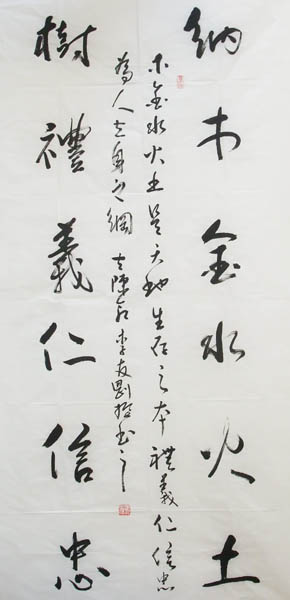 納木金水火土
木金水火土是天地生存之本禮義仁信忠
為人立身之綱 書之
樹禮義仁信忠